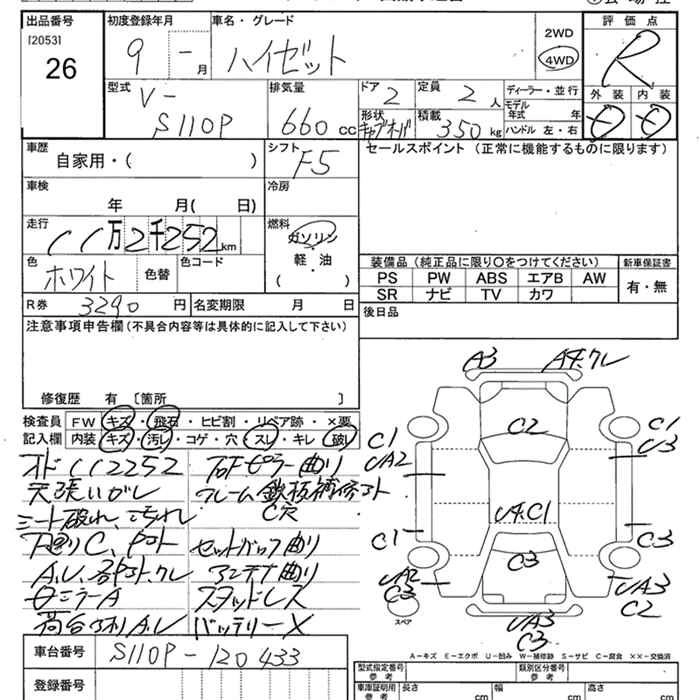 出品番号
[2053]
26
初度登録年月
9 - 月
車名・グレード
ハイゼット
2WD
4WD
評価点
R
型式
V-
S110P
排気量
660 cc
ドア
2
形状
定員
2 人
積載
350 kg
ディーラー・並行
モデル年式 年
ハンドル 左・右
外装 内装
車歴
自家用・( )
シフト
F5
セールスポイント (正常に機能するものに限ります)
車検
年 月( 日)
冷房
走行
11万2千252km
燃料
ガソリン
軽・油
( )
色
ホワイト
色替
色コード
装備品 (純正品に限り〇をつけてください)
新車保証書
PS PW ABS エアB AW
SR ナビ TV カワ
有・無
R券 3290 円
名変期限 月 日
後日品
注意事項申告欄(不具合内容等は具体的に記入して下さい)
修復歴 有 [箇所 ]
検査員
記入欄
FW キズ・飛石・ヒビ割・リペア跡・×要
内装 キズ・汚レ・コゲ・穴・スレ・キレ・破レ
オドCC2252
天張いがレ
シート破れ、汚れ
下廻りC、
A.U、
ミラーA
荷台
ピラー曲り
フレーム鉄板補修
C穴
セットバック曲り
アンテナ曲り
スタッドレス
バッテリーX
A3
A4.クレ
C2
C1
UA2
C1
U3
U4.C1
C1
C3
C3
UA2
C3
UA3
C2
スペア
UA3
C3
A-キズ E-エクボ U-凹み W-補修跡 S-サビ C-腐食 ××-交換済
車台番号
S110P-120433
登録番号
型式指定番号
参考
類別区分番号
参考
車庫証明用
参考
長さ cm
幅 cm
高さ cm